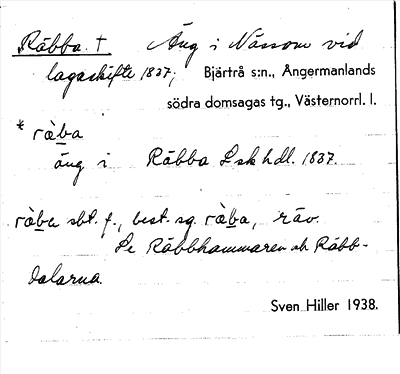 Räbba. † Äng i Nässom vid
lagaskifte 1837; Bjärtrå s:n., Ångermanlands
södra domsagas tg., Västernorrl. l.
* ràba
äng i Räbba Lskhdl. 1837.
ràba sbt. f., best. sg. ràba, räv.
Se Räbbhammaren och Räbb-
dalarna.
Sven Hiller 1938.